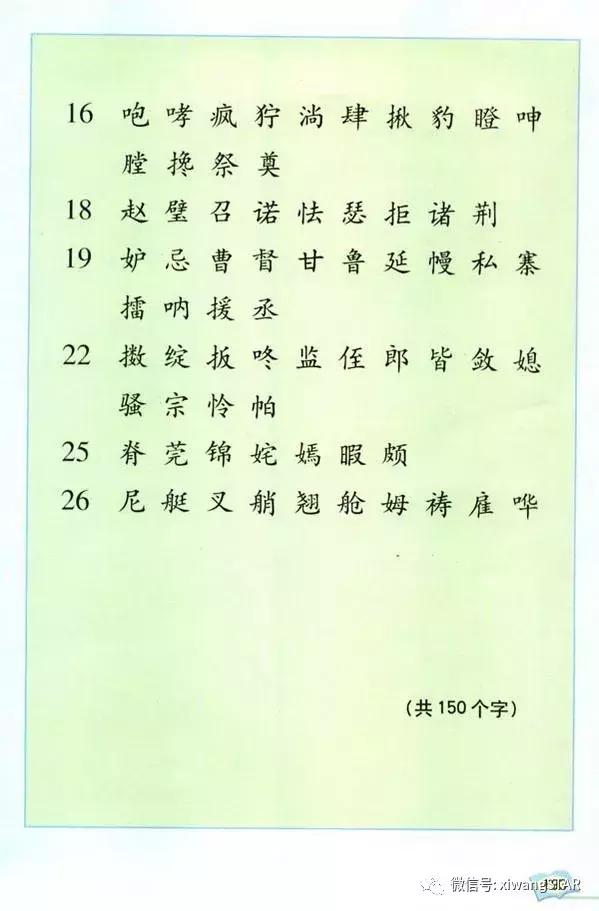 16 咆 哮 疯 狞 淌 肆 揪 豹 瞪 呻
膛 搀 祭 奠
18 赵 璧 召 诺 怯 瑟 拒 诸 荆
19 妒 忌 曹 督 甘 鲁 延 幔 私 寨
擂 呐 援 丞
22 擞 绽 扳 咚 监 侄 郎 皆 敛 媳
骚 宗 怜 帕
25 脊 莞 锦 姹 嫣 暇 颇
26 尼 艇 叉 艄 翘 舱 姆 祷 雇 哗
（共 150 个字）
微信号: